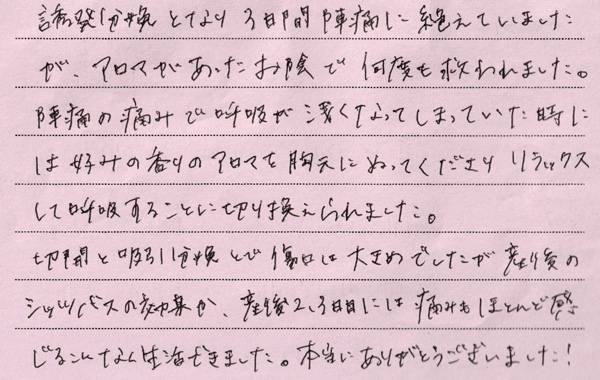 誘発分娩となり3日間陣痛に絶えていました
が、アロマがあったお陰で何度も救われました。
陣痛の痛みで呼吸が浅くなってしまっていた時に
は好みの香りのアロマを胸元にぬってくださりリラックス
して呼吸することに切り換えられました。
切開と吸引分娩とで傷口は大きめでしたが産後の
シッツバスの効果か、産後2,3日目には痛みもほとんど感
じることなく生活できました。本当にありがとうございました!